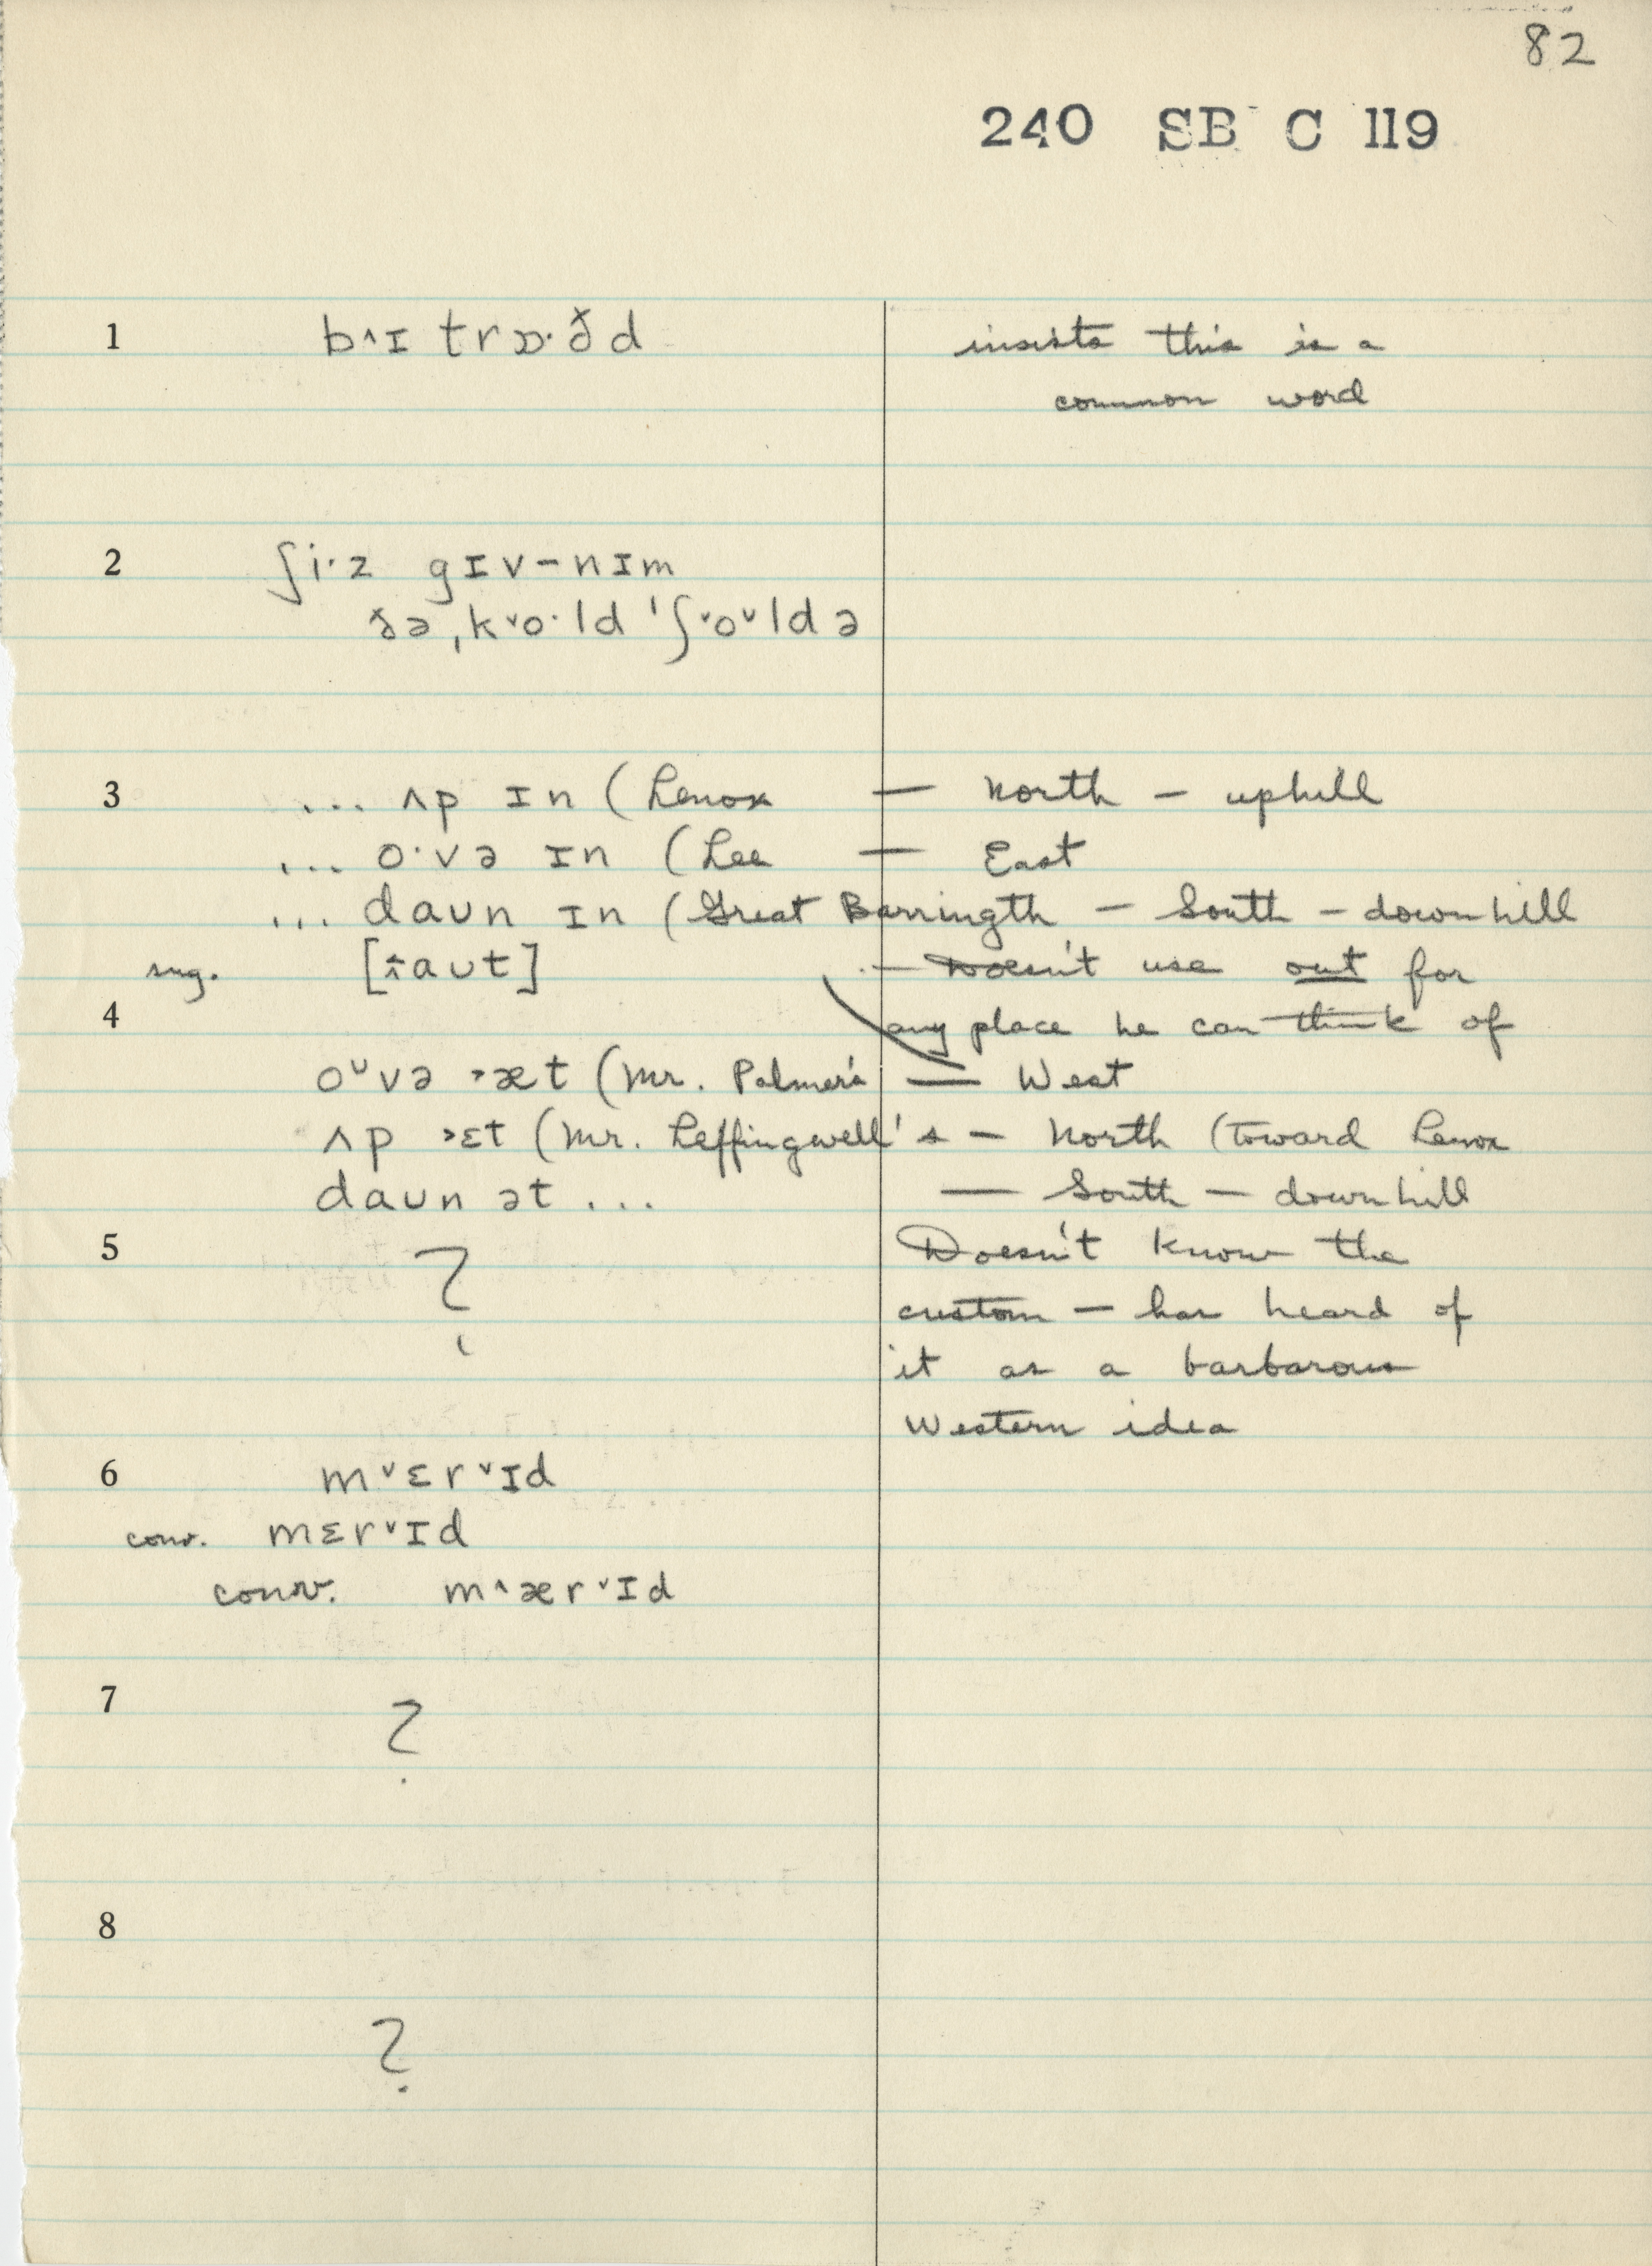 82
240 SB C 119
1 b˄ɪ trɒ·ðd insists this is a
common word
2 ʃi·z gɪv-nɪm
ðə ˌk˅o·ld ˈʃ˅oᵘldə
3 ... ʌp ɪn (Lenox — North — uphill
... o·və ɪn (Lee — East
... daun ɪn (Great Barringth — South — downhill
sug. [îaut] — Doesn't use out for
4 any place he can think of
oᵘvə ˃æt (Mr. Palmer's — West
ʌp ˃ɛt (Mr. Leffingwell's — North (toward Lenox
daun ət ... — South — downhill
5 ? Doesn't know the
custom — has heard of
it as a barbarous
Western idea
6 m˅ɛr˅ɪd
conv. mɛr˅ɪd
conv. m˄ær˅ɪd
7 ?
8
?